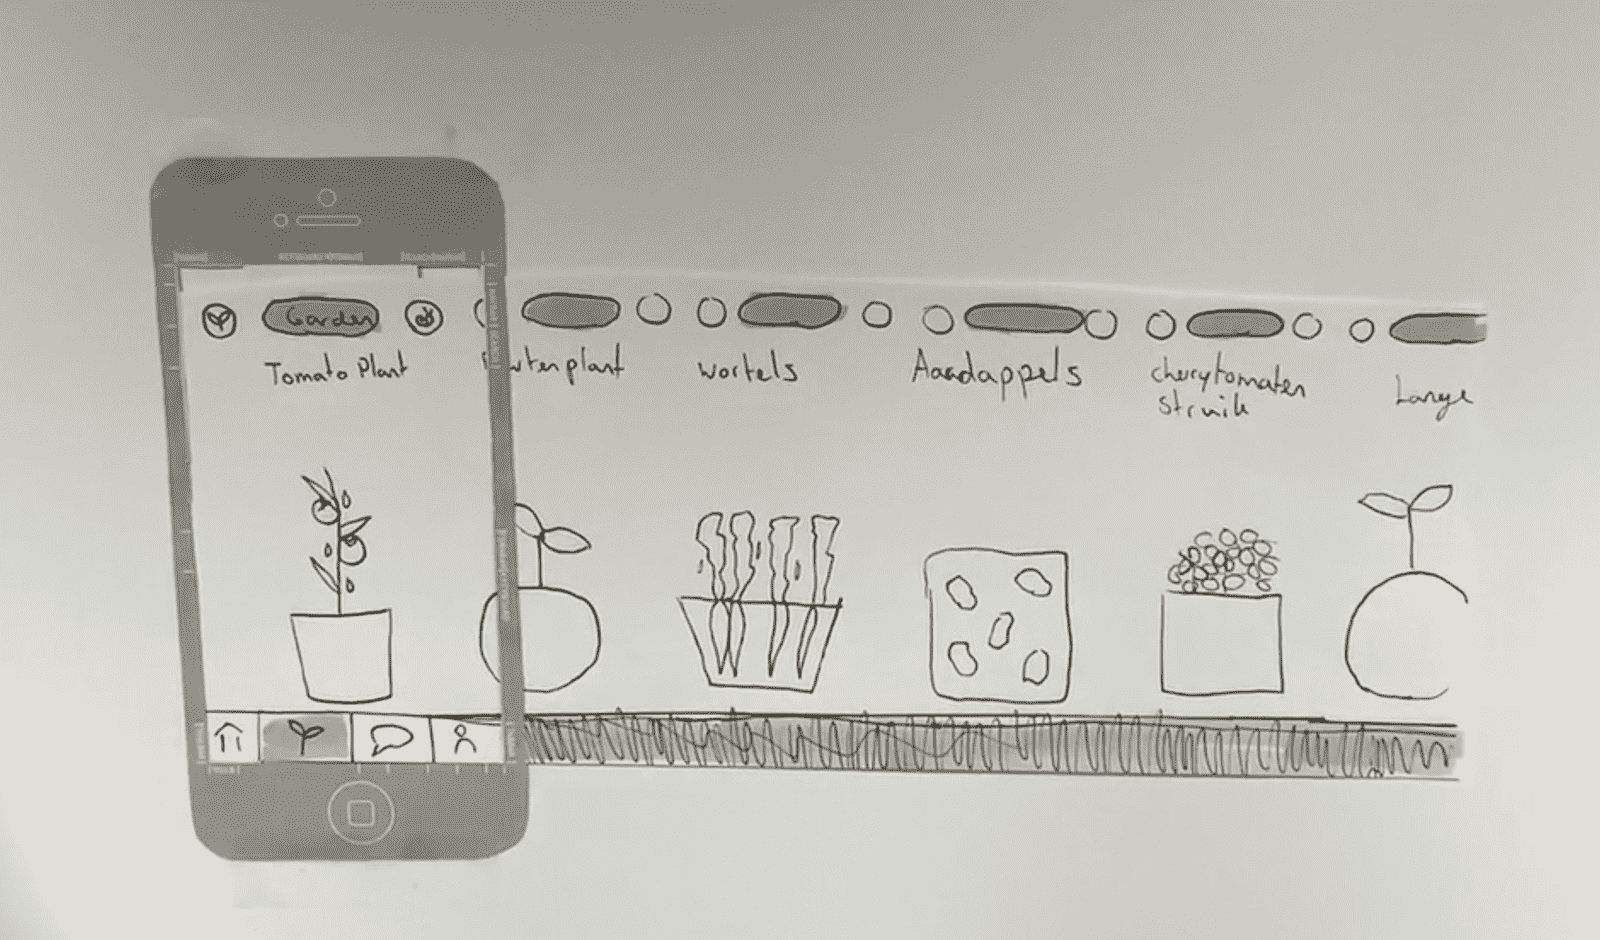 Garden
Tomato Plant
plant
wortels
Aaadappels
cherytomaten
struik
Lange